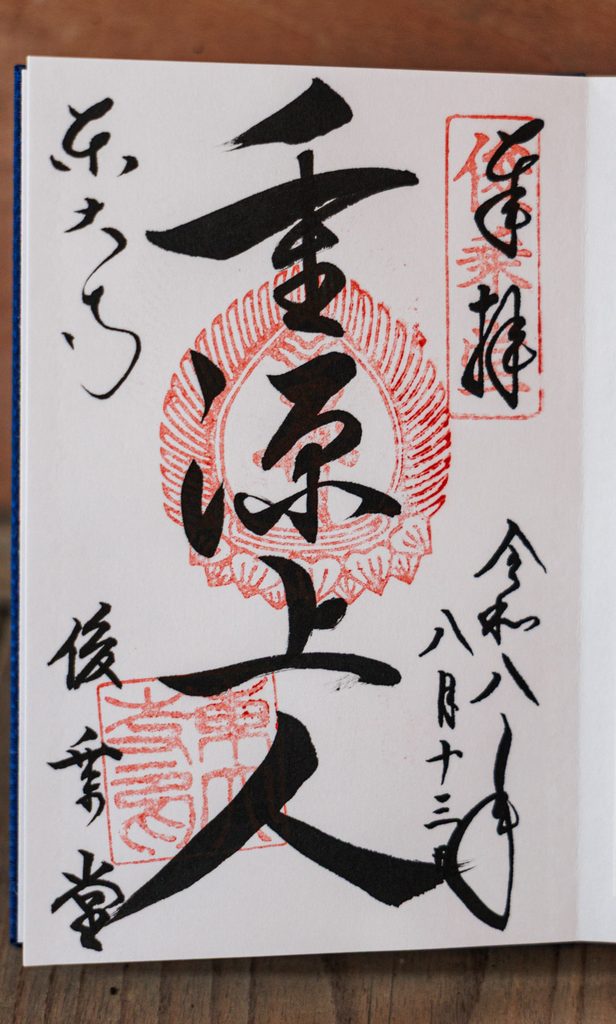 奉拝
俊乗堂
令和八年
八月十三日
重源上人
東大寺
俊乗堂